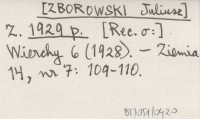 [ZBOROWSKI Juliusz]
Z. 1929 p. [Rec. o:]
Wierchy 6 (1928). - Ziemia
14, nr 7: 109-110.